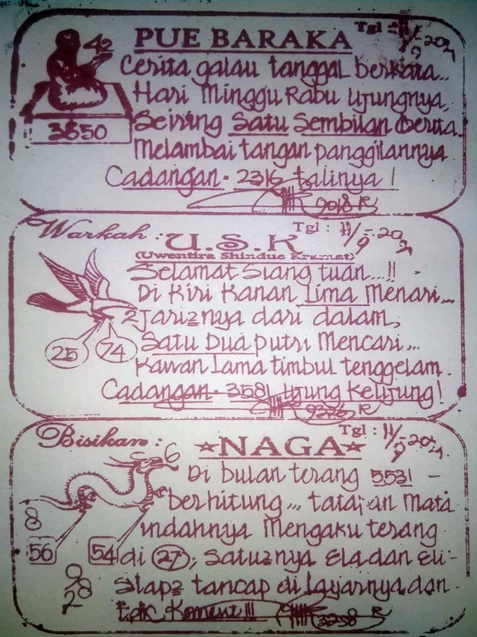 PUE BARAKA
Tgl = 11/9-20
42
3650
Cerita galau tanggal berkata...
Hari Minggu Rabu ujungnya,
Seiring Satu Sembilan Berita
Melambai tangan panggilannya
Cadangan. 2316 talinya !
9018 K
Warkah : U.S.K
(Uwentira Shindue Kramat)
Tgl : 11/9-20
Selamat Siang tuan...!!
Di Kiri Kanan Lima Menari...
Jari2nya dari dalam,
25 74
Satu Dua putri Mencari...
Kawan Lama timbul tenggelam.
Cadangan. 3581 Ujung Kelijung!
K
Bisikan : ★NAGA★
Tgl : 11/9-20
6
Di bulan terang 5531 -
berhitung... tatapan Mata
8
indahnya Mengaku terang
56 54 di (27); Satu2nya Ela dan Eli-
Siap2 tancap di Layarnya dan
Epic Koment !!!
3258 K